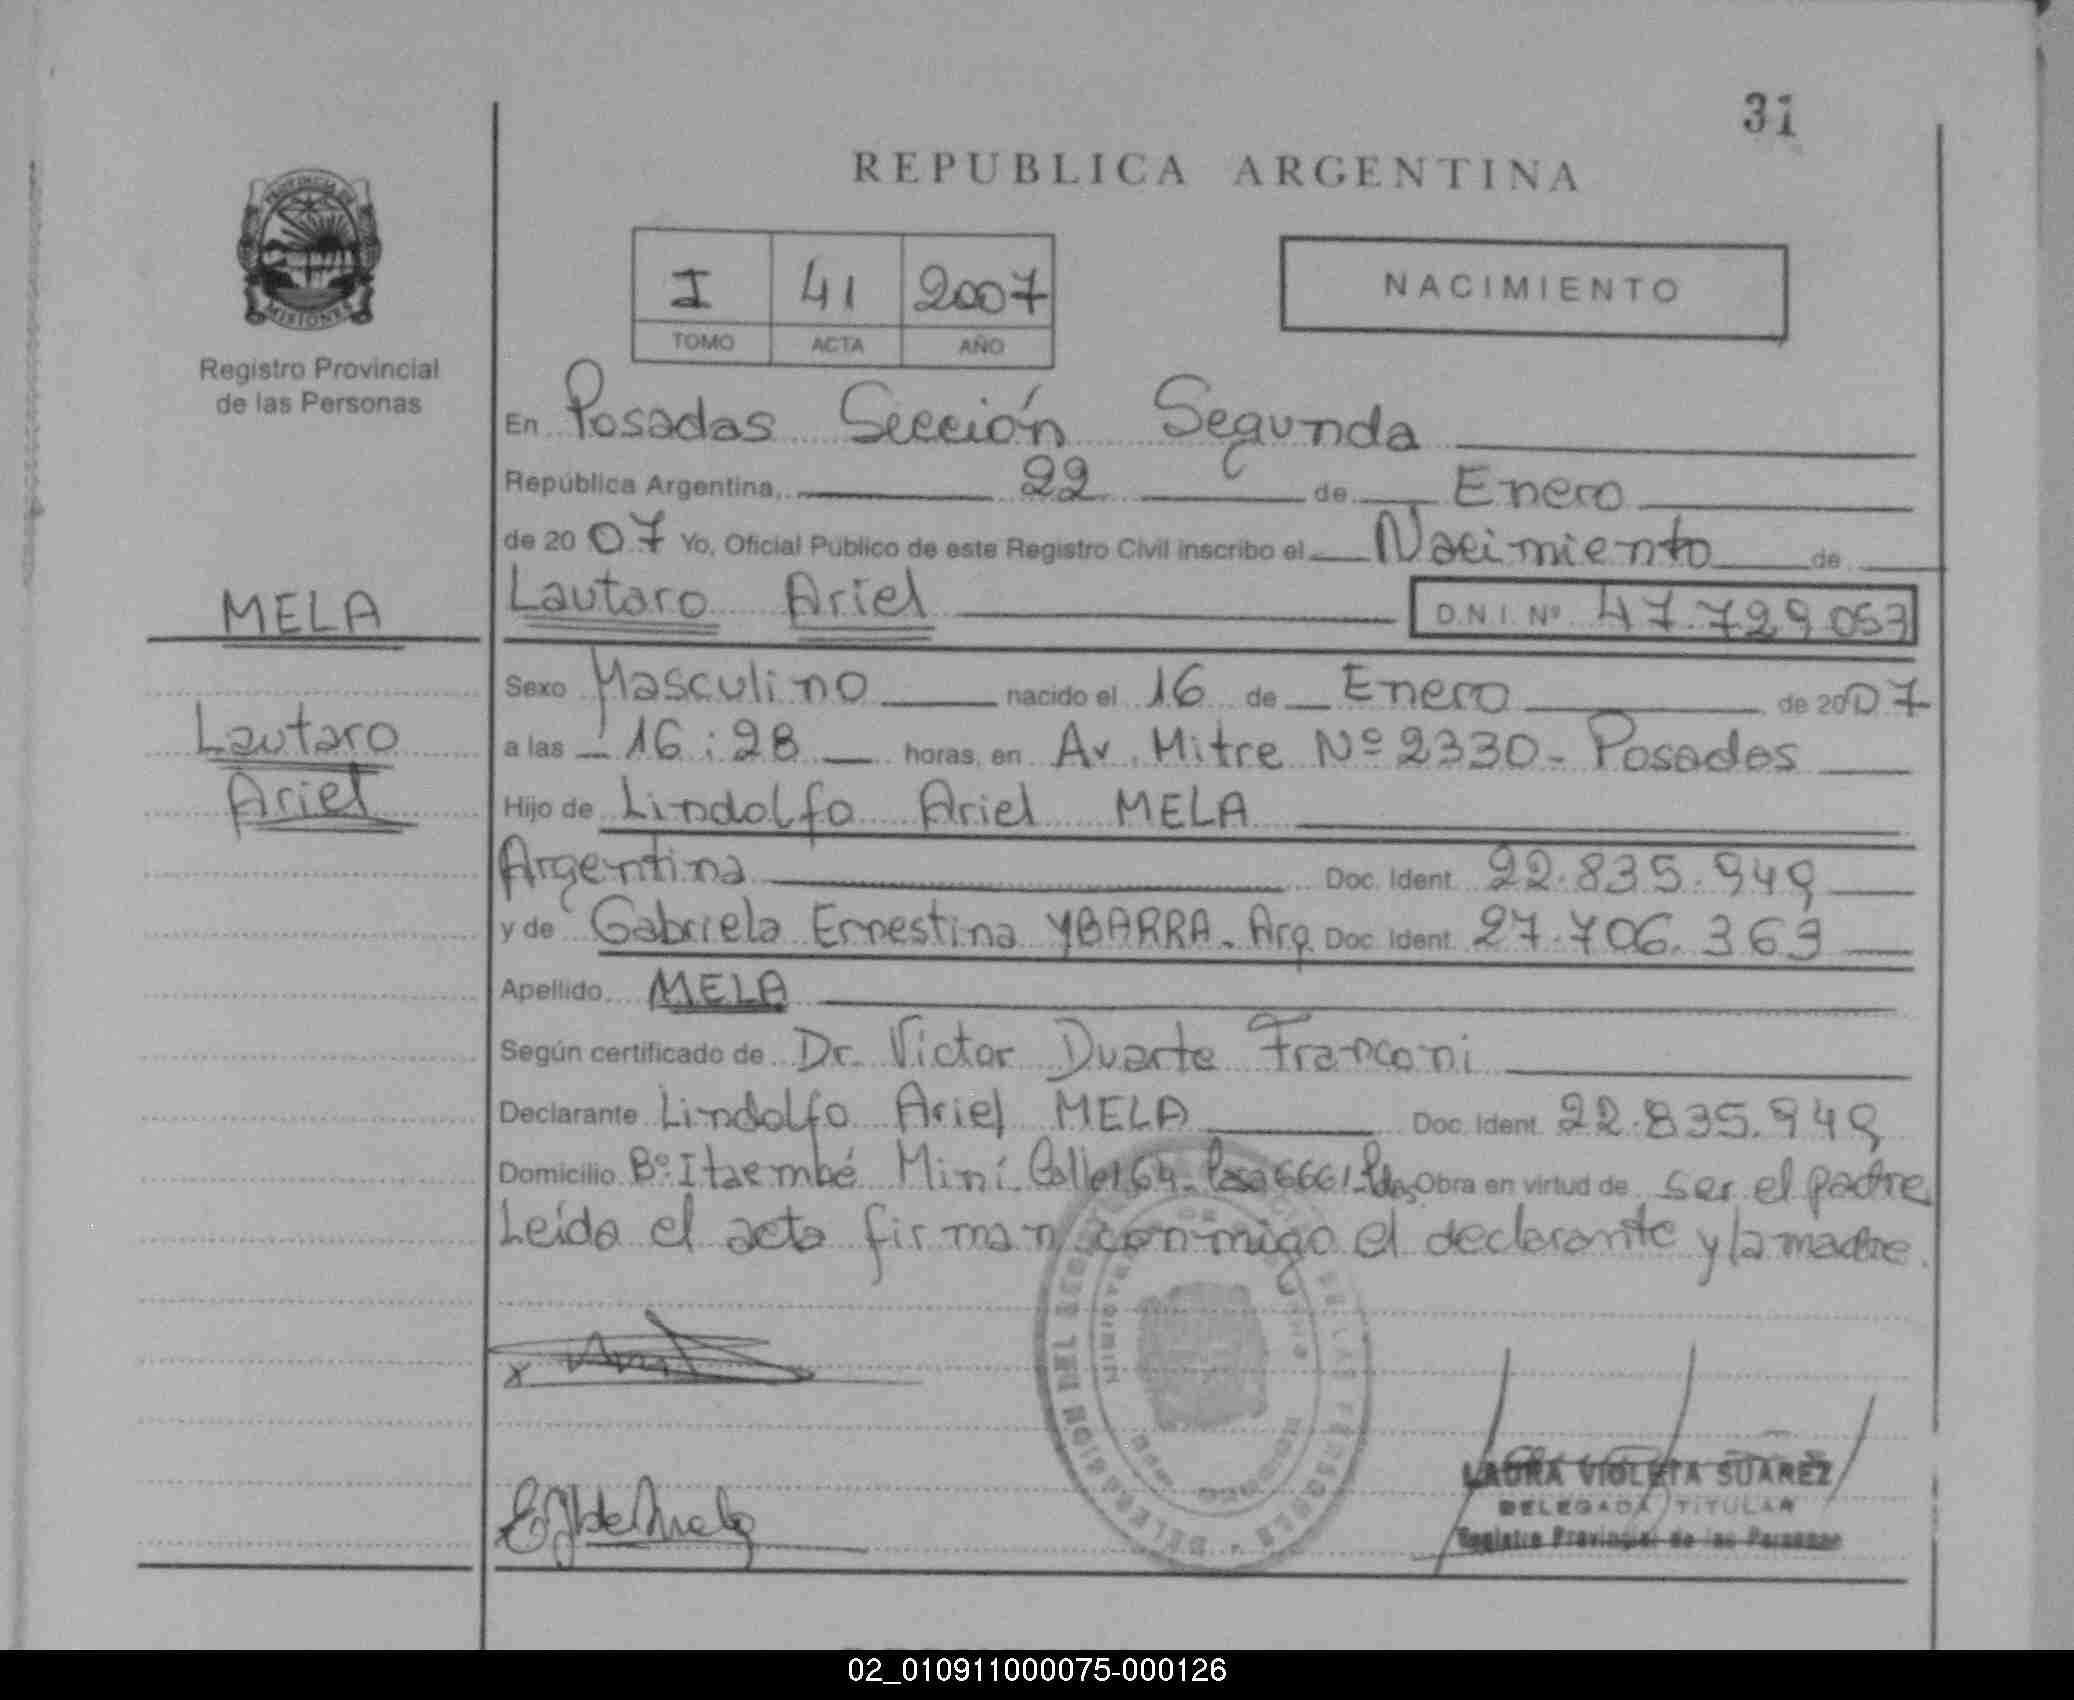 31
REPUBLICA ARGENTINA
PROVINCIA DE
MISIONES
Registro Provincial
de las Personas
I 41 2007
TOMO ACTA AÑO
NACIMIENTO
En Posadas Sección Segunda
República Argentina, 22 de Enero
de 2007 Yo, Oficial Público de este Registro Civil inscribo el Nacimiento de
MELA
Lautaro Ariel D.N.I. Nº 47.729.053
Sexo Masculino nacido el 16 de Enero de 2007
Lautaro
a las 16:28 horas, en Av. Mitre Nº 2330 - Posadas
Ariel
Hijo de Lindolfo Ariel MELA
Argentina Doc. Ident. 22.835.949
y de Gabriela Ernestina YBARRA. Arg. Doc. Ident. 27.706.363
Apellido MELA
Según certificado de Dr. Victor Duarte Franconi
Declarante Lindolfo Ariel MELA Doc. Ident. 22.835.949
Domicilio Bº Itaembé Miní Calle 164 - Casa 6661 - Pdas. Obra en virtud de ser el padre
Leída el acta firman conmigo el declarante y la madre.
x
LAURA VIOLETA SUAREZ
DELEGADA TITULAR
Registro Provincial de las Personas
02_010911000075-000126